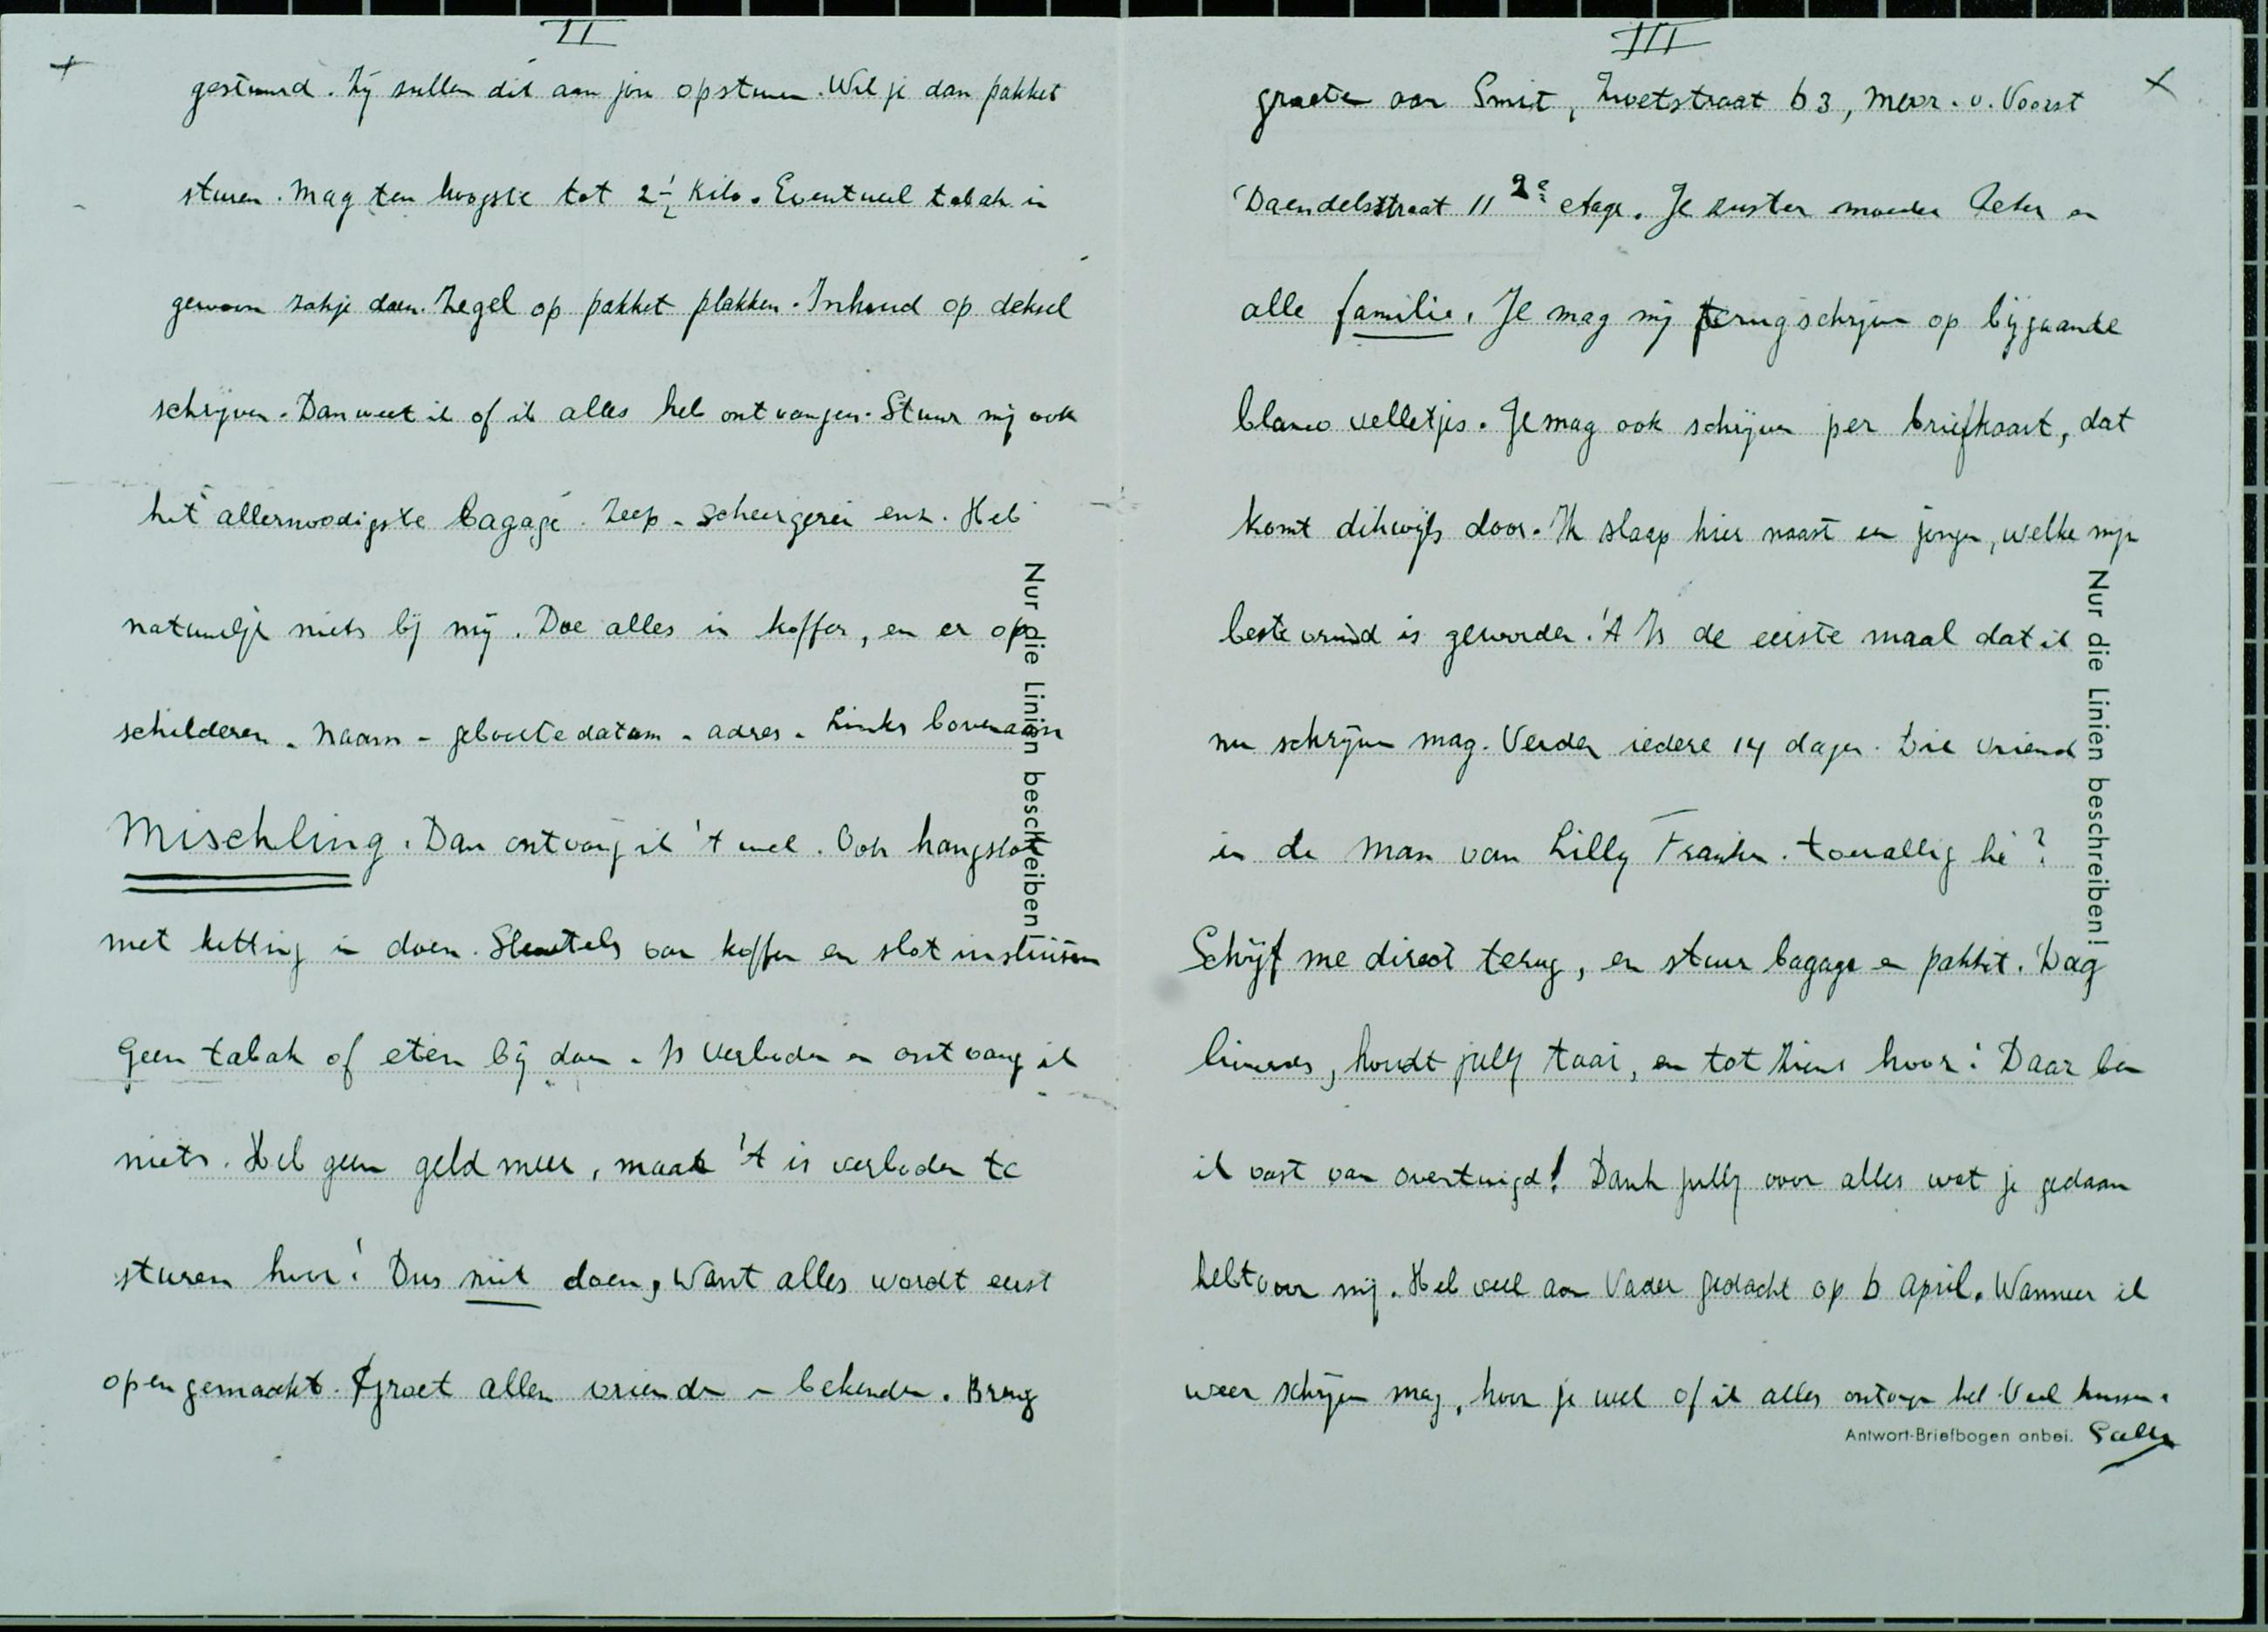 II
gestuurd. Zij zullen dit aan jou opsturen. Wil je dan pakket
sturen. Mag ten hoogste tot 2½ Kilo. Eventueel tabak in
gewoon zakje doen. Zegel op pakket plakken. Inhoud op deksel
schrijven. Dan weet ik of ik alles heb ontvangen. Stuur mij ook
het allernoodigste bagage. Zeep - scheergerei enz. Heb
natuurlijk niets bij mij. Doe alles in koffer, en er op
schilderen - naam - geboortedatum - adres - Links bovenaan
Mischling. Dan ontvang ik 't wel. Ook hangslot
met ketting in doen. Sleutels van koffer en slot insluiten
Geen tabak of eten bij doen. Is verboden en ontvang ik
niets. Heb geen geld meer, maar 't is verboden te
sturen hoor! Dus niet doen, want alles wordt eerst
opengemaakt. Groet allen vrienden en bekenden. Breng
Nur die Linien beschreiben!
III
groeten aan Smit, Zwetstraat 63, mevr. v. Voorst
Daendelsstraat 11 2e etage. Je zuster moeder en
alle familie. Je mag mij terugschrijven op bijgaande
blanco velletjes. Je mag ook schrijven per briefkaart, dat
komt dikwijls door. Ik slaap hier naast een jongen, welke mijn
beste vriend is geworden. 't Is de eerste maal dat ik
nu schrijven mag. Verder iedere 14 dagen. Die vriend
is de man van Lilly Franken. toevallig hè?
Schrijf me direct terug, en stuur bagage en pakket. Dag
lieverds, houdt jully taai, en tot ziens hoor! Daar ben
ik vast van overtuigd! Dank jully voor alles wat je gedaan
hebt voor mij. Heb veel aan Vader gedacht op 6 april. Wanneer ik
weer schrijven mag, hoor je wel of ik alles ontvangen heb. Veel kussen.
Antwort-Briefbogen anbei. Sally
Nur die Linien beschreiben!